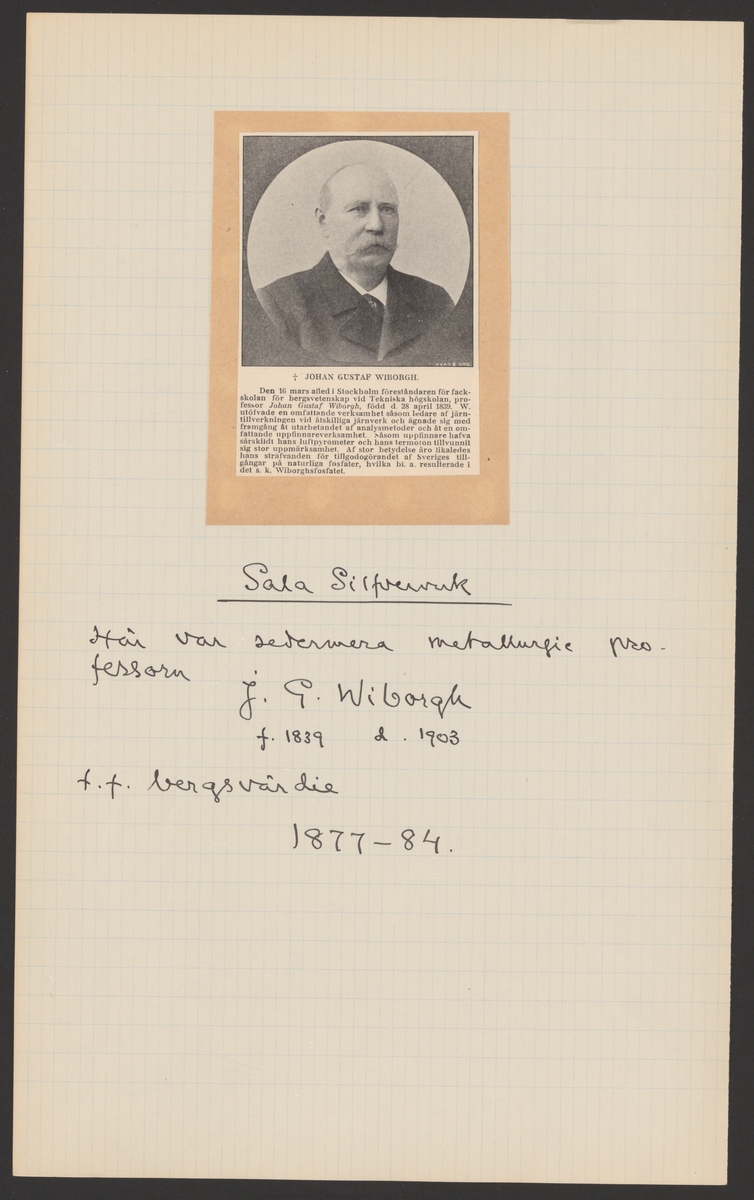 † JOHAN GUSTAF WIBORGH.
Den 16 mars afled i Stockholm föreståndaren för fack-
skolan för bergsvetenskap vid Tekniska högskolan, pro-
fessor Johan Gustaf Wiborgh, född d. 28 april 1839. W.
utöfvade en omfattande verksamhet såsom ledare af järn-
tillverkningen vid åtskilliga järnverk och ägnade sig med
framgång åt utarbetandet af analysmetoder och åt en om-
fattande uppfinnareverksamhet. Såsom uppfinnare hafva
särskildt hans luftpyrometer och hans termofon tillvunnit
sig stor uppmärksamhet. Af stor betydelse äro likaledes
hans sträfvanden för tillgodogörandet af Sveriges till-
gångar på naturliga fosfater, hvilka bl. a. resulterade i
det s. k. Wiborghsfosfatet.
Sala Silfververk
Här var sedermera metallurgie pro-
fessorn
J. G. Wiborgh
f. 1839 d. 1903
t.f. bergsvärdie
1877-84.